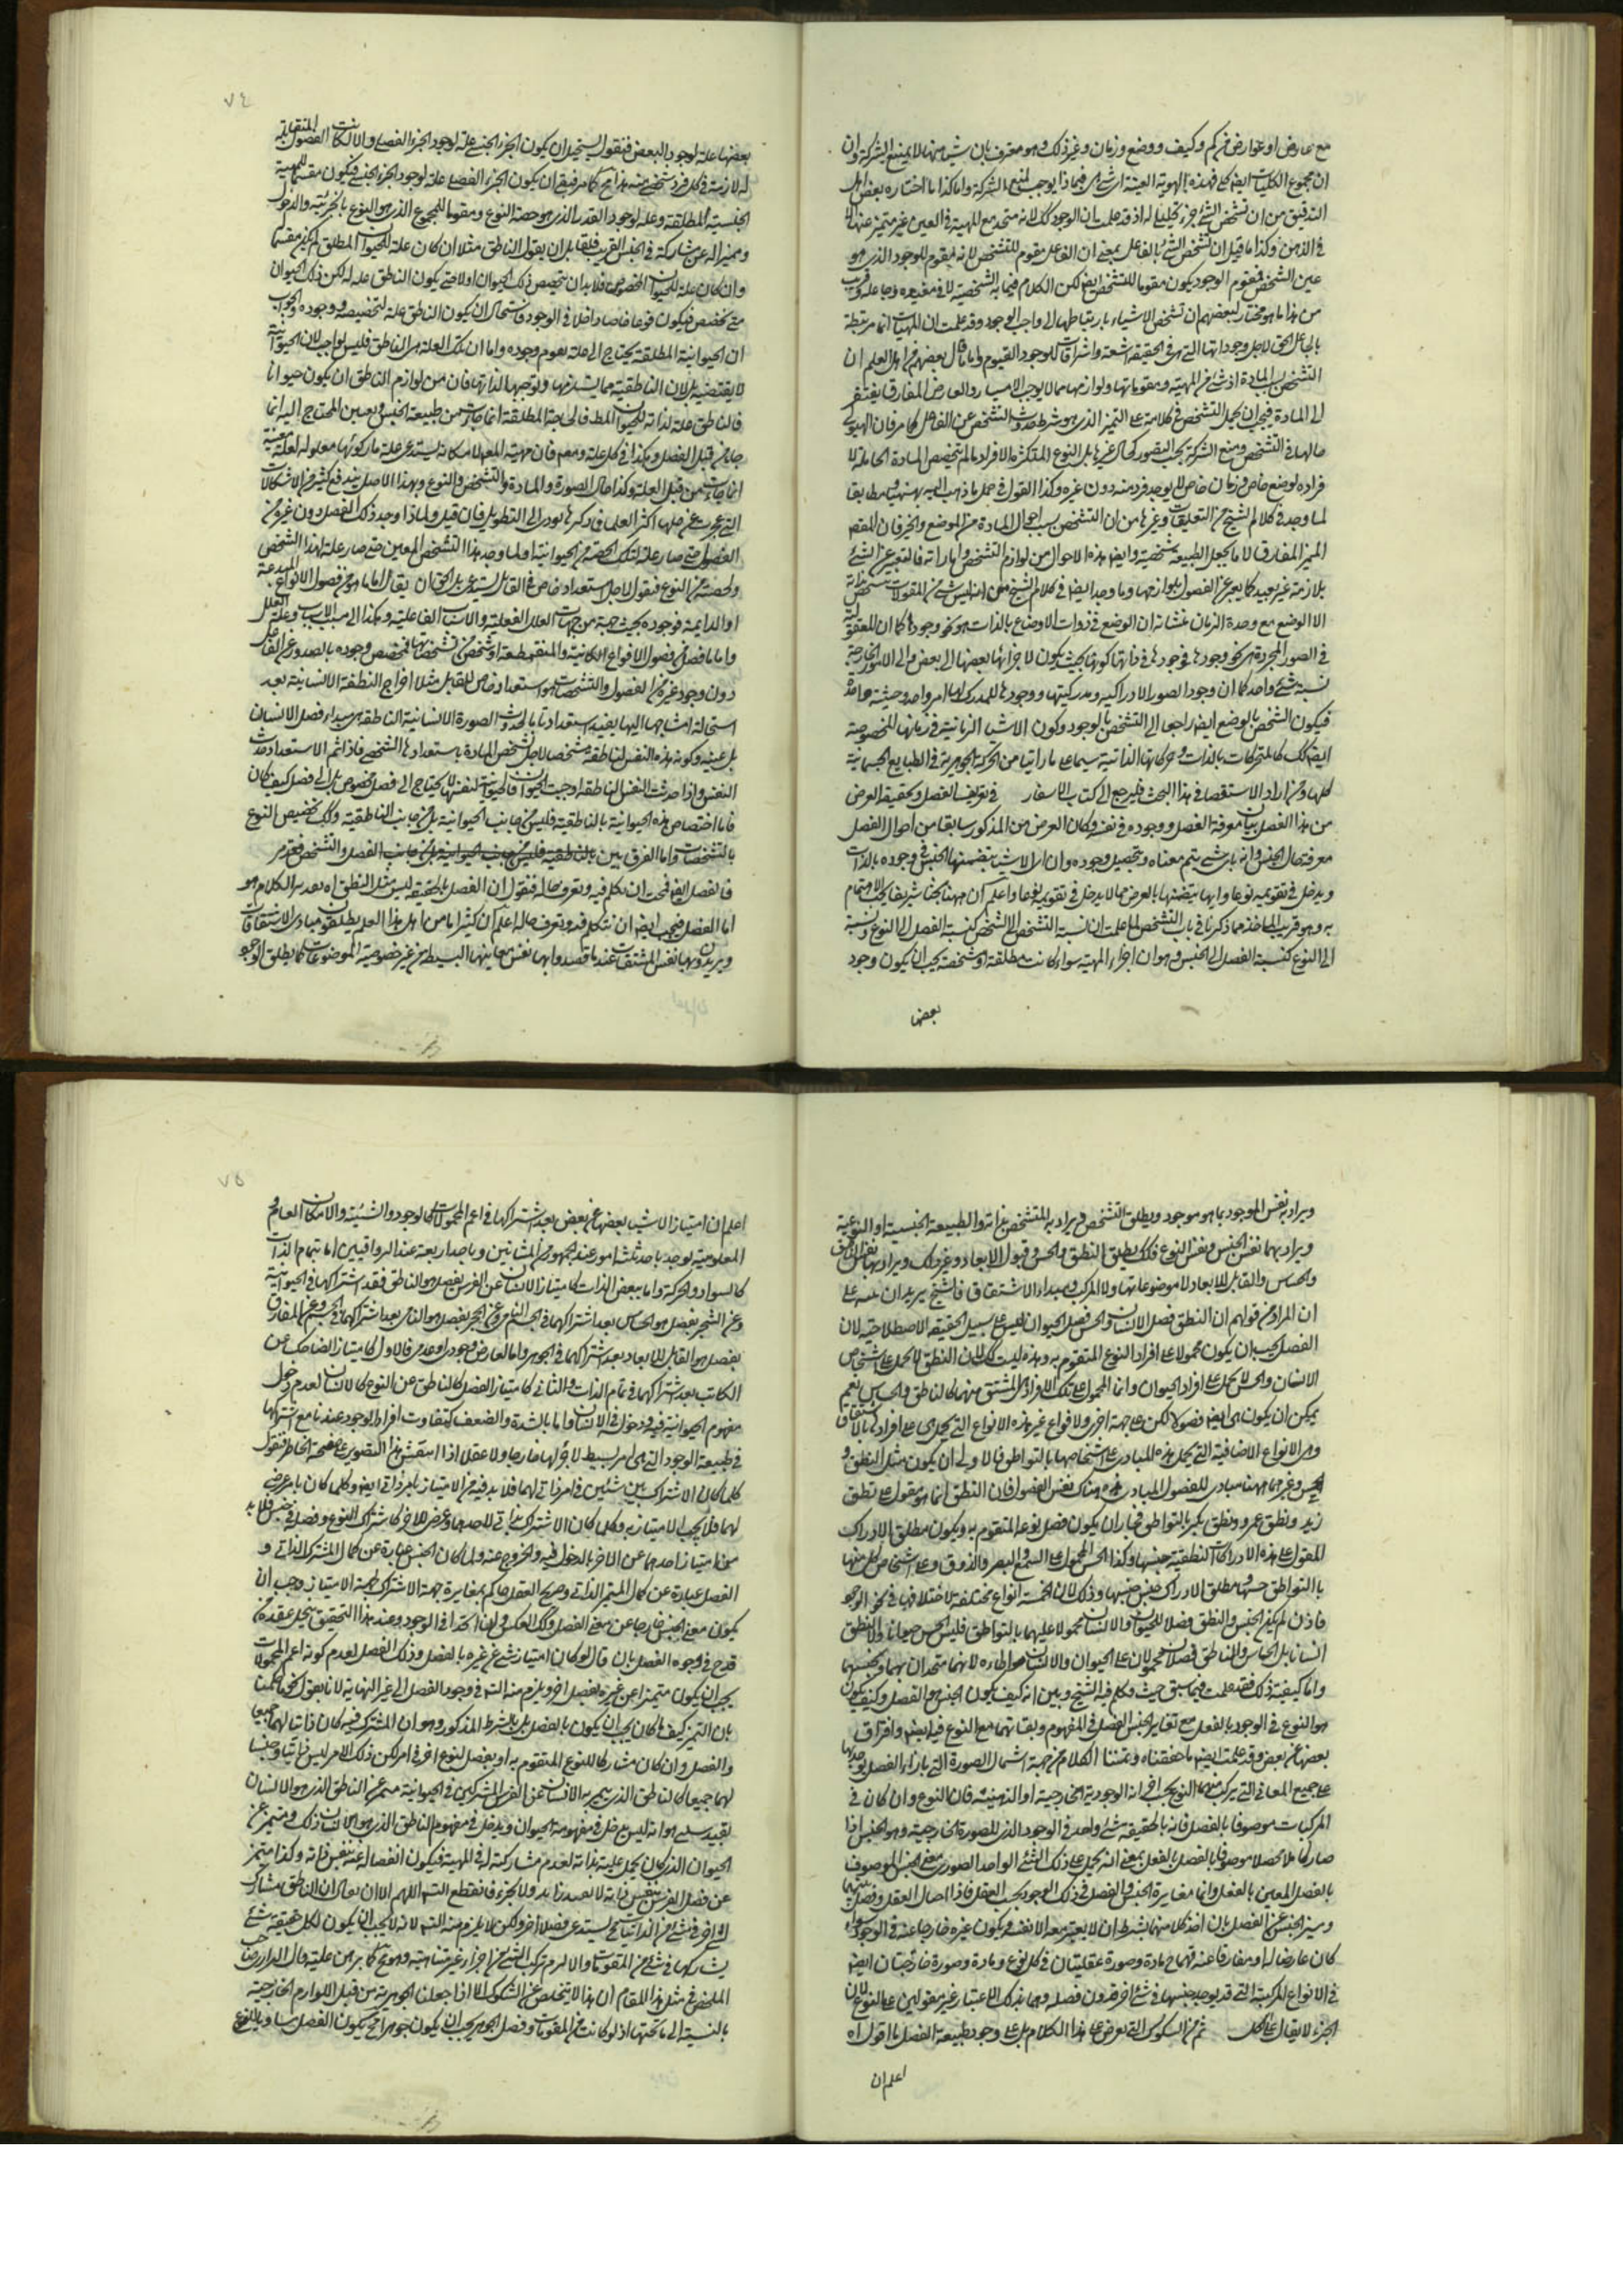 مع عارض او عوارض من كم وكيف ووضع وزمان وغير ذلك وهو معترف بان شيئا منها لا يمنع الشركة وان
ان مجموع الكليات ايضا كلي فهذه الهوية العينية اي شيء هي فيماذا يوجب لمنع الشركة واما كذا ما اختاره بعض اهل
التدقيق من ان تشخص الشيء جزء تحليلي له اذ قد علمت بان الوجود كك لانه متحد مع المهية في العين غير متميز عنها الا
في الذهن وكذا ما قيل ان تشخص الشيء بالفاعل بمعنى ان الفاعل مقوم للتشخص لانه مقوم للوجود الذي هو
عين التشخص فمقوم الوجود يكون مقوما للتشخص ايضا لكن الكلام فيما به الشخصية لا في مفيده وجاعله وقريب
من هذا ما هو مختار لبعضهم ان تشخص الاشياء بارتباطها الى واجب الوجود وقد علمت ان المهيات انما مرتبطة
بالجاعل الحق لاجل وجوداتها التي هي في الحقيقة اشعة واشراقات للوجود القيوم واما ما قال بعضهم من اهل العلم ان
التشخص بسبب المادة اذ شيء من المهية ومقوماتها ولوازمها مما لا يوجب الامتياز والعارض المفارق يفتقر
الى المادة فيجب ان يحمل التشخص في كلامه على التميز الذي هو شرط حدوث التشخص عن الفاعل كما مر فان الهيولى
حالها في التشخص ومنع الشركة بحسب التصور كحال غيرها بل النوع المتكثر الافراد ما لم يتخصص المادة الحاملة لا
فراده لوضع خاص وزمان خاص لا يوجد فرد منه دون غيره وكذا القول في حمل ما ذهب اليه بهمنيار مطابقا
لما وجد في كلام الشيخ من التعليقات وغيرها من ان التشخص بسبب احوال المادة من الموضع والحيز فان المقصود
المميز المفارق لا ما يجعل الطبيعة شخصية وايضا هذه الاحوال من لوازم التشخص واماراته فالتعبير عن الشيء
بلازمه غير بعيد كما يعبر عن الفصول بلوازمها وما وجد ايضا في كلام الشيخ من انه ليس شيء من المقولات متشخص بذاته
الا الوضع مع وحدة الزمان فمنشاه ان الوضع في ذوات الاوضاع بالذات هو نحو وجودها كما ان المعقولية
في الصور المجردة هي نحو وجودها فوجودها في ذاتها كونها بحيث يكون لاجزائها بعضها الى بعض والى الامور الخارجة
نسبة شيء واحد كما ان وجود الصور الادراكية ومدركيتها ووجودها للمدرك لها امر واحد وحيثية واحدة
فيكون التشخص بالوضع ايضا راجعا الى التشخص بالوجود وكون الاشياء الزمانية في زمانها المخصوصة
ايضا كك كالمتحركات بالذات وحركاتها الذاتية سيما على ما راينا من الحركة الجوهرية في الطبايع الجسمانية
كلها ومن اراد الاستقصاء في هذا البحث فليرجع الى كتاب الاسفار في تعريف الفصل وتحقيقه الغرض
من هذا الفصل بيان معرفة الفصل ووجوده في نفسه وكان الغرض من المذكور سابقا من احوال الفصل
معرفة حال الجنس وانه باي شيء يتم معناه وتحصيل وجوده وان اي الاشياء يتضمنها الجنس في وجوده بالذات
ويدخل في تقويمه نوعا وايها يتضمنها بالعرض مما لا يدخل في تقويمه نوعا واعلم ان ههنا بحثا شريفا يجب الاهتمام
به وهو قريب الماخذ مما ذكرنا في باب التشخص لما علمت ان نسبة التشخص الى الشخص كنسبة الفصل الى النوع ونسبته
الى النوع كنسبة الفصل الى الجنس وهو ان اجزاء المهية سواء كانت مطلقة او شخصية يجب ان يكون وجود
بعضها
٧٤
بعضها علة لوجود البعض فنقول يستحيل ان يكون الجزء الجنسي علة لوجود الجزء الفصلي والا لكانت الفصول المتقابلة
لازمة في كل فرد شخصي منه هذا مح كما مر فبقي ان يكون الجزء الفصلي علة لوجود الجزء الجنسي فيكون مقسما للمهية
الجنسية المطلقة وعلة لوجود القدر الذي هو حصة النوع ومقوما للمجموع الذي هو النوع بالجزئية والدخول
ومميزا له عن مشاركه في الجنس القريب فلقائل ان يقول الناطق مثلا ان كان علة للحيوان المطلق لم يكن مقسما
وان كان علة للحيوان المخصوص فلا بد ان يتخصص ذلك الحيوان اولا حتى يكون الناطق علة له لكن ذلك الحيوان
متى تخصص فيكون نوعا خاصا داخلا في الوجود فاستحال ان يكون الناطق علة لتخصيصه ووجوده والجواب
ان الحيوانية المطلقة يحتاج الى علة يقوم وجوده واما ان تلك العلة هي الناطق فليس لواجب لان الحيوانية
لا يقتضيه بل لان الناطقية مما يستلزمها ويوجبها لذاتها فان من لوازم الناطق ان يكون حيوانا
فالناطق علة لذاته للحيوان المط فالحاجة المطلقة انما جاءت من طبيعة الجنس وتعيين المحتاج اليه انما
جاء من قبل الفصل وهكذا في كل علة ومعلول فان مهية المعلول لامكانه يستدعي علة ما وكونها معلولة لعلة معينة
انما جاءت من قبل العلة وكذا حال الصورة والمادة والتشخص والنوع وبهذا الاصل يندفع كثير من الاشكالات
التي عجزت عن حلها اكثر العلماء وذكرها يودي الى التطويل فان قيل ولماذا وجد ذلك الفصل دون غيره من
الفصول حتى صار علة لتلك الحصة من الحيوانية او لما وجد هذا التشخص المعين حتى صار علة لهذا الشخص
ولحصته من النوع فنقول لاجل استعداد خاص في القابل يستدعيه بل الحق ان يقال اما ما هو من فصول الانواع المبدعة
او الدايمة فوجوده بحيث يجب من جهات العلل الفعلية والاسباب الفاعلية وهكذا الى مسبب الاسباب وعلة العلل
واما ما فصل من فصول الانواع الكائنة والمنقطعة او شخص من تشخصاتها فمخصص وجوده بالصدور عن الفاعل
دون وجود غيره من الفصول والتشخصات هو استعداد خاص للقابل مثلا مزاج النطفة الانسانية بعد
استحالة امشاجها اليها يفيد استعدادا تاما لحدوث الصورة الانسانية الناطقة هي مبداء فصل الانسان
بل عينه وكونه هذه النفس الناطقة متشخصا لاجل تشخص المادة باستعدادها الشخصي فاذا تم الاستعداد حدث
النفس واذا حدثت النفس الناطقة اوجبت الحيوان فالحيوانية لنفسها لا يحتاج الى فصل مخصوص بل الى فصل كيف كان
فاما اختصاص هذه الحيوانية بالناطقية فليس من جانب الحيوانية بل من جانب الناطقية وكك تخصيص النوع
بالتشخصات واما الفرق بين بالناطقية فليس من جانب الحيوانية بل من جانب الفصل والتشخص فقد مر
فالفصل ايضا فيجب ان نتكلم فيه ونعرف حاله فنقول ان الفصل بالحقيقة ليس مثل النطق اه يعد من الكلام هو
اما الفصل فيجب ايضا ان نتكلم فيه ونعرف حاله اعلم ان كثيرا ما من اهل هذا العلم يطلقون مبادي الاشتقاقات
ويريدون بها نفس المشتقات عندما قصدوا بها نفس معانيها البسيطة من غير خصوصية الموضوعات كما يطلق الوجود
ويراد به نفس الموجود بما هو موجود ويطلق التشخص ويراد به المتشخص بذاته والطبيعة الجنسية او النوعية
ويراد بهما نفس الجنس ونفس النوع فكك يطلق النطق والحس وقبول الابعاد وغير ذلك ويراد بها نفس الناطق
والحساس والقابل للابعاد لا موضوعاتها ولا المركب ومبداء الاشتقاق فالشيخ يريد ان ينبه على
ان المراد من قولهم ان النطق فصل الانسان والحس فصل الحيوان ليس على سبيل الحقيقة الاصطلاحية لان
الفصل يجب ان يكون محمولا على افراد النوع المتقوم به وهذه ليست كك لان النطق لا يحمل على اشخاص
الانسان والحس لا يحمل على افراد الحيوان وانما المحمول على تلك الافراد المشتق منهما كالناطق والحساس نعم
يمكن ان يكون هي ايضا فصولا لكن على جهة اخرى ولانواع غير هذه الانواع التي يحمل هي على افرادها بالاشتقاق
وهي الانواع الاضافية التي يحمل هذه المبادي على اشخاصها بالتواطؤ فالاولى ان يكون مثل النطق و
الحس وغيرهما ههنا مبادي للفصول المبادي هناك نفس الفصول فان النطق انما هو مقول على نطق
زيد ونطق عمرو ونطق بكر بالتواطؤ فجاز ان يكون فصل نوعها المتقوم به ويكون مطلق الادراك
المقول على هذه الادراكات النطقية جنسها وكذا الحس المحمول على السمع والبصر والذوق وعلى اشخاص كل منها
بالتواطؤ حسها ومطلق الادراك جنس جنسها وذلك لان الخمسة انواع مختلفة لاختلافها في نحو الوجود
فاذن لم يكن الحس والنطق فصلا للحيوان والانسان محمولا عليهما بالتواطؤ فليس الحس حيوانا ولا النطق
انسانا بل الحساس والناطق فصلان محمولان على الحيوان والانسان هو اطاءة لانهما متحدان بهما وبجنسهما
واما كيفية ذلك فقد علمت فيما سبق حيث تكلم فيه الشيخ وبين انه كيف يكون الجنس هو الفصل وكيف يكون
هو النوع في الوجود بالفعل مع تغاير الجنس الفصل في المفهوم وبقائهما مع النوع فيه ايضا وافتراق
بعضها عن بعض وقد علمت ايضا ما حققناه وتممنا الكلام من جهة اشتمال الصورة التي بازاء الفصل بوحدتها
على جميع المعاني التي يركب منها النوع بحسب اي انه الوجودية الخارجية او الذهنية فان النوع وان كان في
المركبات موصوفا بالفصل فانه بالحقيقة شيء واحد في الوجود الذي للصورة الخارجية وهو الجنس اذا
صار كاملا محصلا موصوفا بالفصل بالفعل بمعنى انه يحمل على ذلك الشيء الواحد الصوري معنى الجنس الموصوف
بالفصل المعين بالفعل وانما مغايرة الجنس والفصل في ذلك الوجود بحسب العقل فاذا احال العقل وفصل بينهما
وميز الجنس عن الفصل بان اخذ كلا منهما بشرط ان لا يعتبر معه الا نفسه ويكون غيره خارجا عنه في الوجود سواء
كان عارضا له او مفارقا عنه فهما ح مادة وصورة عقليتان في كل نوع ومادة وصورة خارجيتان ايضا
في الانواع المركبة التي قد يوجد جنسها في شيء اخر دون فصله وهما بذلك الاعتبار غير مقولين على النوع لان
الجزء لا يقال على الكل ثم من الشكوك التي يعرض على هذا الكلام بل على وجود طبيعة الفصل ما اقول اه
اعلم ان
٧٥
اعلم ان امتياز الاشياء بعضها عن بعض بعد اشتراكها في اعم المحمولات كالوجود والشيئية والامكان العام و
المعلومية يوجد باحد ثلثة امور عند الجمهور من المشائين وباحد اربعة عند الرواقيين اما بتمام الذات
كالسواد والحركة واما ببعض الذات كامتياز الانسان عن الفرس بفصل هو الناطق فقد اشتراكهما في الحيوانية
وعن الشجر بفصل هو الحساس بعد اشتراكهما في الجسم النامي وعن الحجر بفصل هو النامي بعد اشتراكهما في الجسم وعن المفارق
بفصل هو القابل للابعاد بعد اشتراكهما في الجوهر واما لعارض وجودي او عدمي فالاول كامتياز الضاحك عن
الكاتب بعد اشتراكهما في تمام الذات والثاني كامتياز الفصل كالناطق عن النوع كالانسان لعدم دخول
مفهوم الحيوانية فيه ودخوله في الانسان واما بالشدة والضعف كتفاوت افراد الوجود عندنا مع اشتراكها
في طبيعة الوجود التي هي امر بسيط لا جزء لها خارجا ولا عقلا اذا انتقش هذا التصوير على صفحة الخاطر فنقول
كلما كان الاشتراك بين شيئين في امر ذاتي لهما فلا بد فيه من الامتياز بامر ذاتي ايضا وكلما كان بامر عرضي
لهما فلا يجب الامتياز به وكلما كان الاشتراك بذاتي لاحدهما وعرضي للاخر كاشتراك النوع وفصله في جنس فلا بد
من امتياز احدهما عن الاخر بالدخول فيه والخروج عنه ولما كان الجنس عبارة عن كمال المشترك الذاتي و
الفصل عبارة عن كمال المميز الذاتي وصريح العقل حاكم بمغايرة جهة الاشتراك لجهة الامتياز وجب ان
يكون معنى الجنس خارجا عن معنى الفصل وكك العكس وان اتحدا في الوجود وعند هذا التحقيق ينحل عقدة من
قدح في وجود الفصل بان قال لو كان امتياز شيء عن غيره بالفصل وذلك الفصل لعدم كونه اعم المحمولات
يجب ان يكون متميزا عن غيره بفصل اخر ويلزم منه التسه في وجود الفصل الى غير النهاية لانا نقول انا حكمنا
بان التميز كيف ما كان يجب ان يكون بالفصل بل بالشرط المذكور وهو ان المشترك فيه كان ذاتيا لهما جميعا
والفصل وان كان مشاركا للنوع المتقوم به او بفصل لنوع اخر في امر لكن ذلك الامر ليس ذاتيا وجنسا
لهما جميعا كالناطق الذي يميز به الانسان عن الفرس المشترك في الحيوانية متميز عن الناطق الذي هو الانسان
بقيد سلبي هو انه ليس يدخل في مفهومه الحيوان ويدخل في مفهوم الناطق الذي هو الانسان ذلك ومتميز عن
الحيوان الذي كان يحمل عليه بذاته لعدم مشاركته له في المهية فيكون انفصاله عنه بنفس ذاته وكذا متميز
عن فصل الفرس بنفس ذاته لا بفصل زايد ولا بجزء فانقطع التسه اللهم الا ان يقال ان الناطق مشارك
لشيء اخر في شيء من الذاتيات ح يستدعي فصلا اخر ولكن لا يلزم منه التسه لانه لا يجب ان يكون لكل حقيقة شيء
يشاركها في شيء من المقومات والا لزم تركب الشيء من اجزاء غير متناهية وهو مح كما برهن عليه قال الرازي صاحب
الملخص في مثل هذا المقام ان هذا لا يتخلص عن الشكوك الا اذا جعلنا الجوهرية من قبل اللوازم الخارجية
بالنسبة الى ما تحتها اذ لو كانت من المقومات وفصل الجوهر يجب ان يكون جوهرا فح يكون الفصل مساويا للنوع